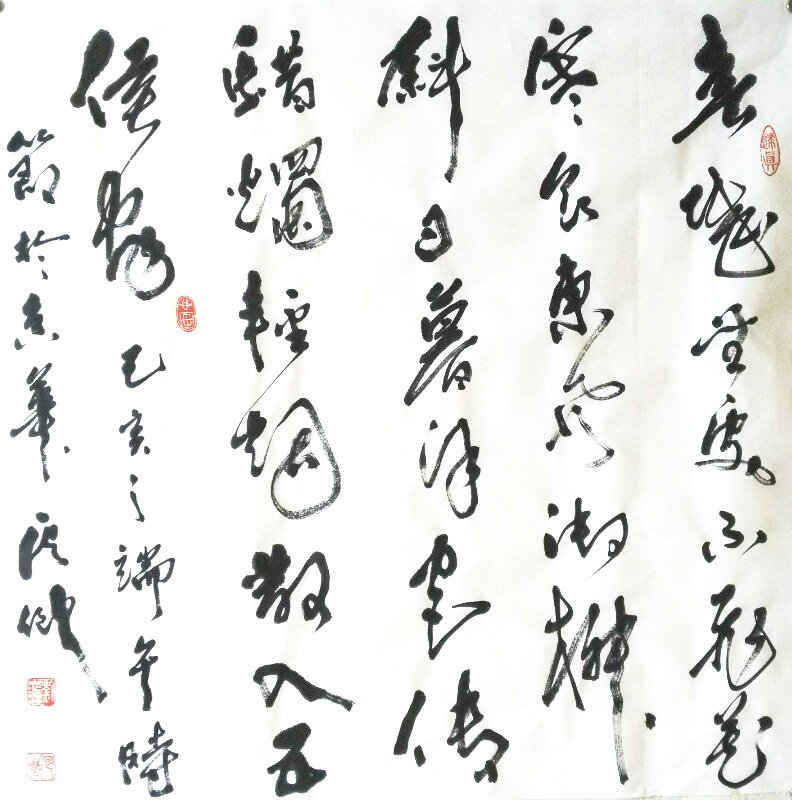 春城無處不飛花
寒食東風御柳
斜日暮漢宮傳
蜡燭輕烟散入五
侯家 己亥之端午時
節於京華